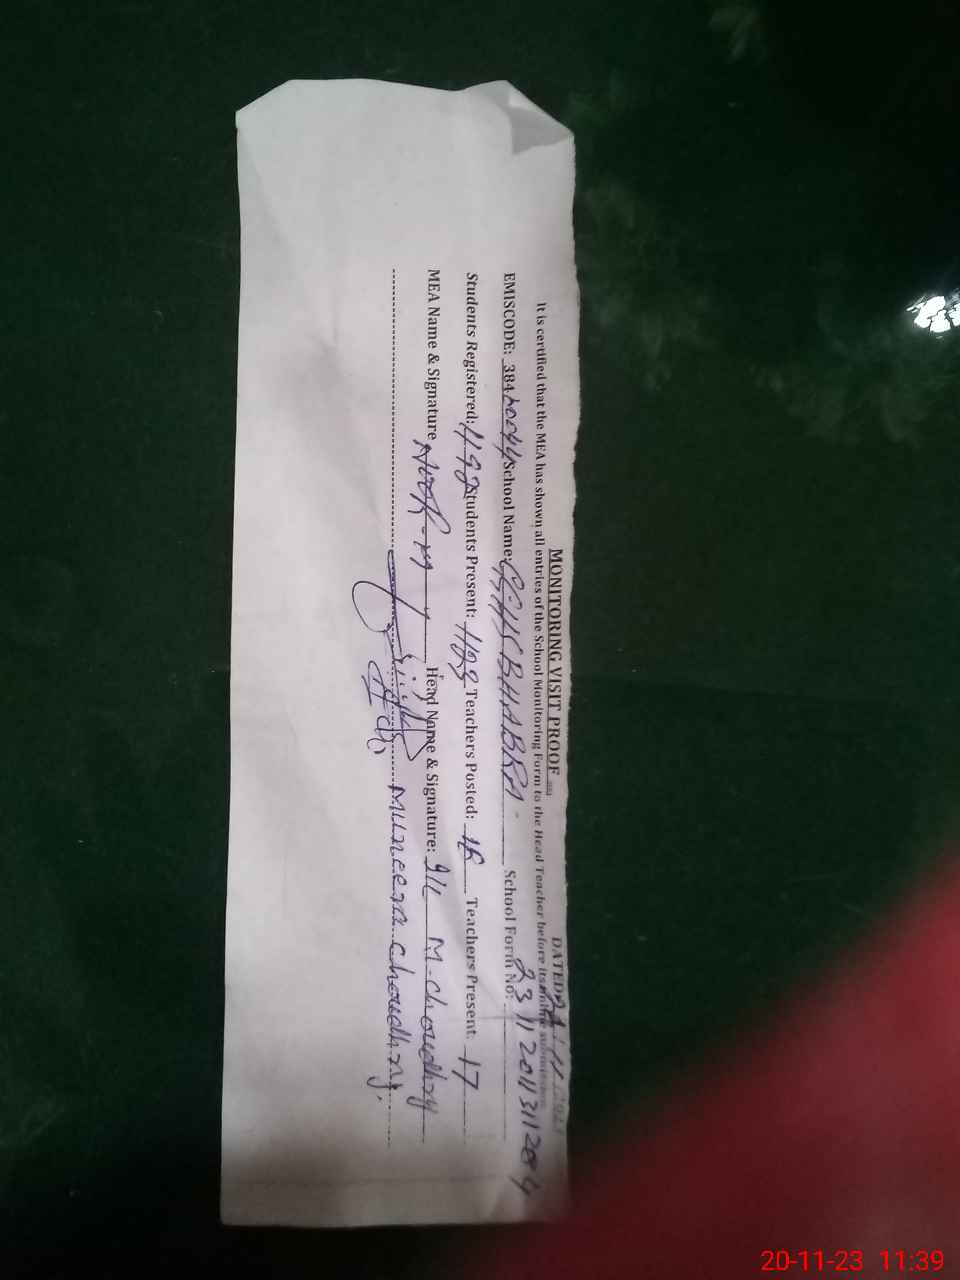 MONITORING VISIT PROOF DATED
It is certified that the MEA has shown all entries of the School Monitoring Form to the Head Teacher before its online submission
EMISCODE: 384 School Name: GGHS BHABRA School Form No: 23112011311204
Students Registered: 492 Students Present: Teachers Posted: 16 Teachers Present. 17
MEA Name & Signature Head Name & Signature: I/C M. Choudhry
Muneeza Choudhry.
20-11-23 11:39